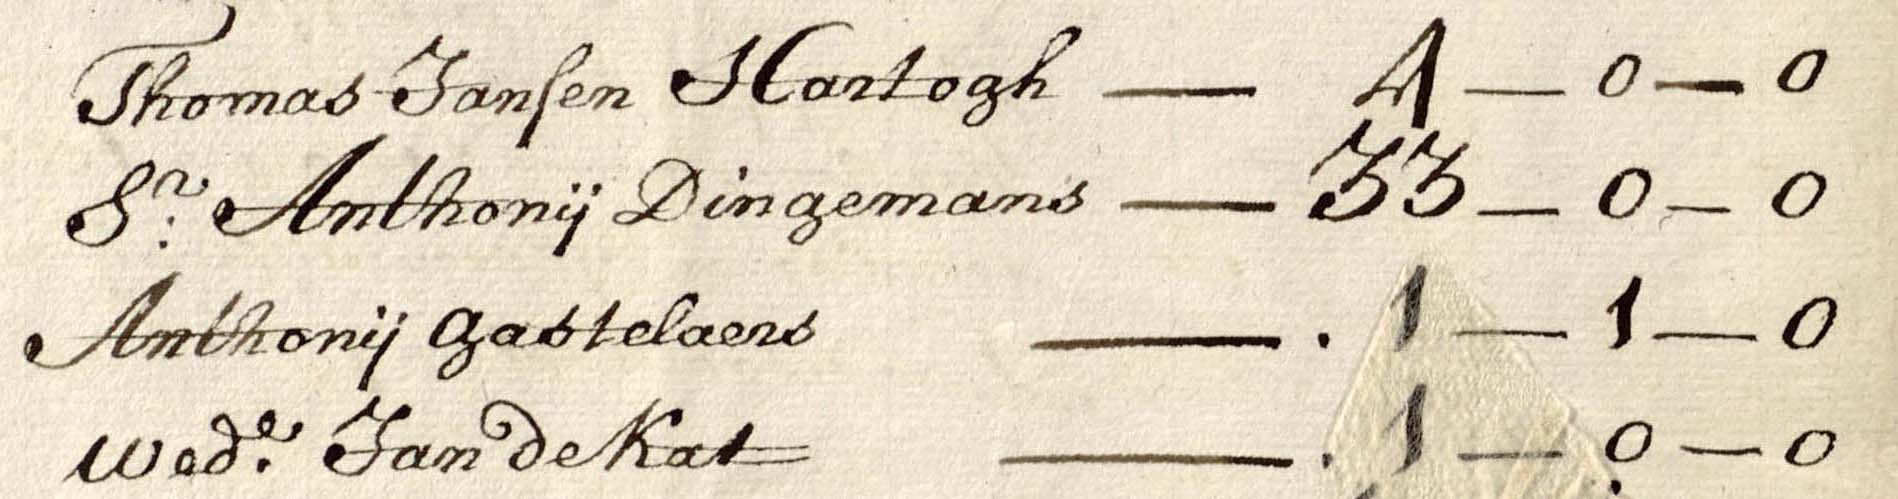 Thomas Jansen Hartogh — 4 — 0 — 0
Sr. Anthonij Dingemans — 33 — 0 — 0
Anthonij Gastelaers — . 1 — 1 — 0
Wede. Jan de Kat — . 1 — 0 — 0